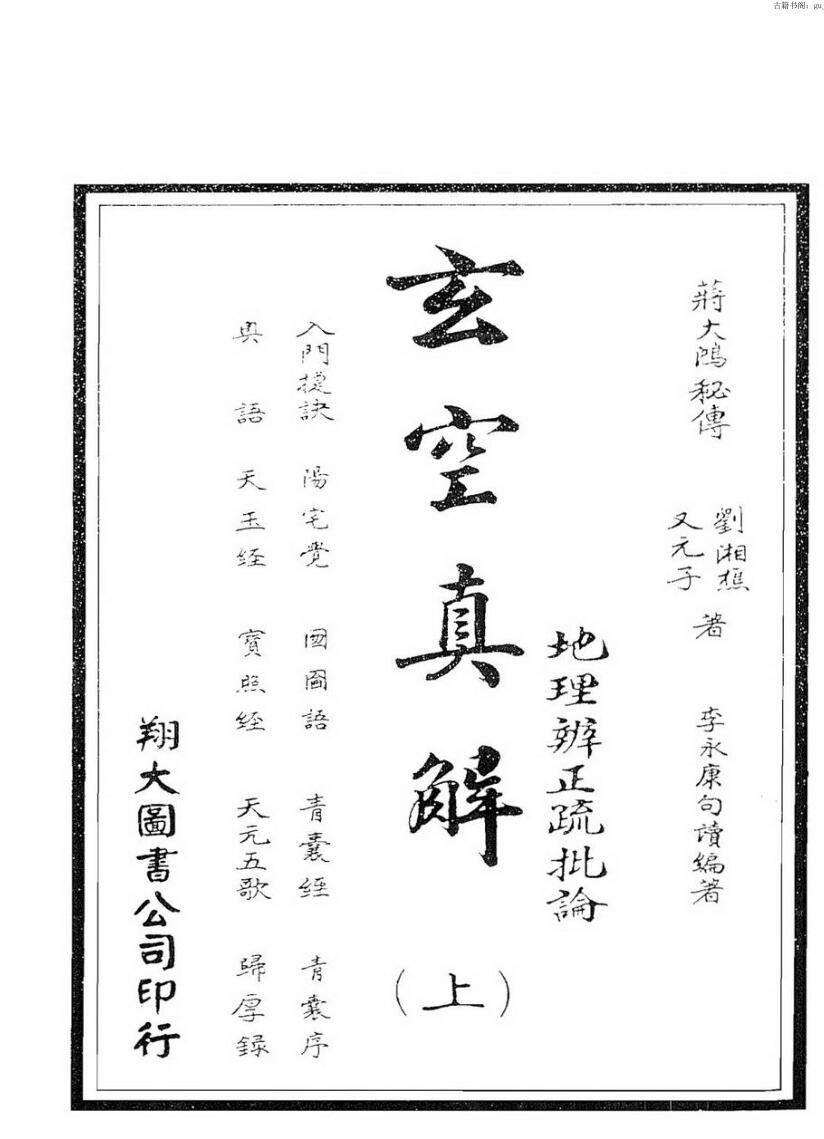 古籍书阁：gu
蔣大鴻秘傳
劉湘樵
又元子
著
李永康句讀編著
地理辨正疏批論
玄空真解
（上）
入門捷訣 陽宅覺 國圖語 青囊經 青囊序
奥語 天玉経 寳照経 天元五歌 歸厚録
翔大圖書公司印行